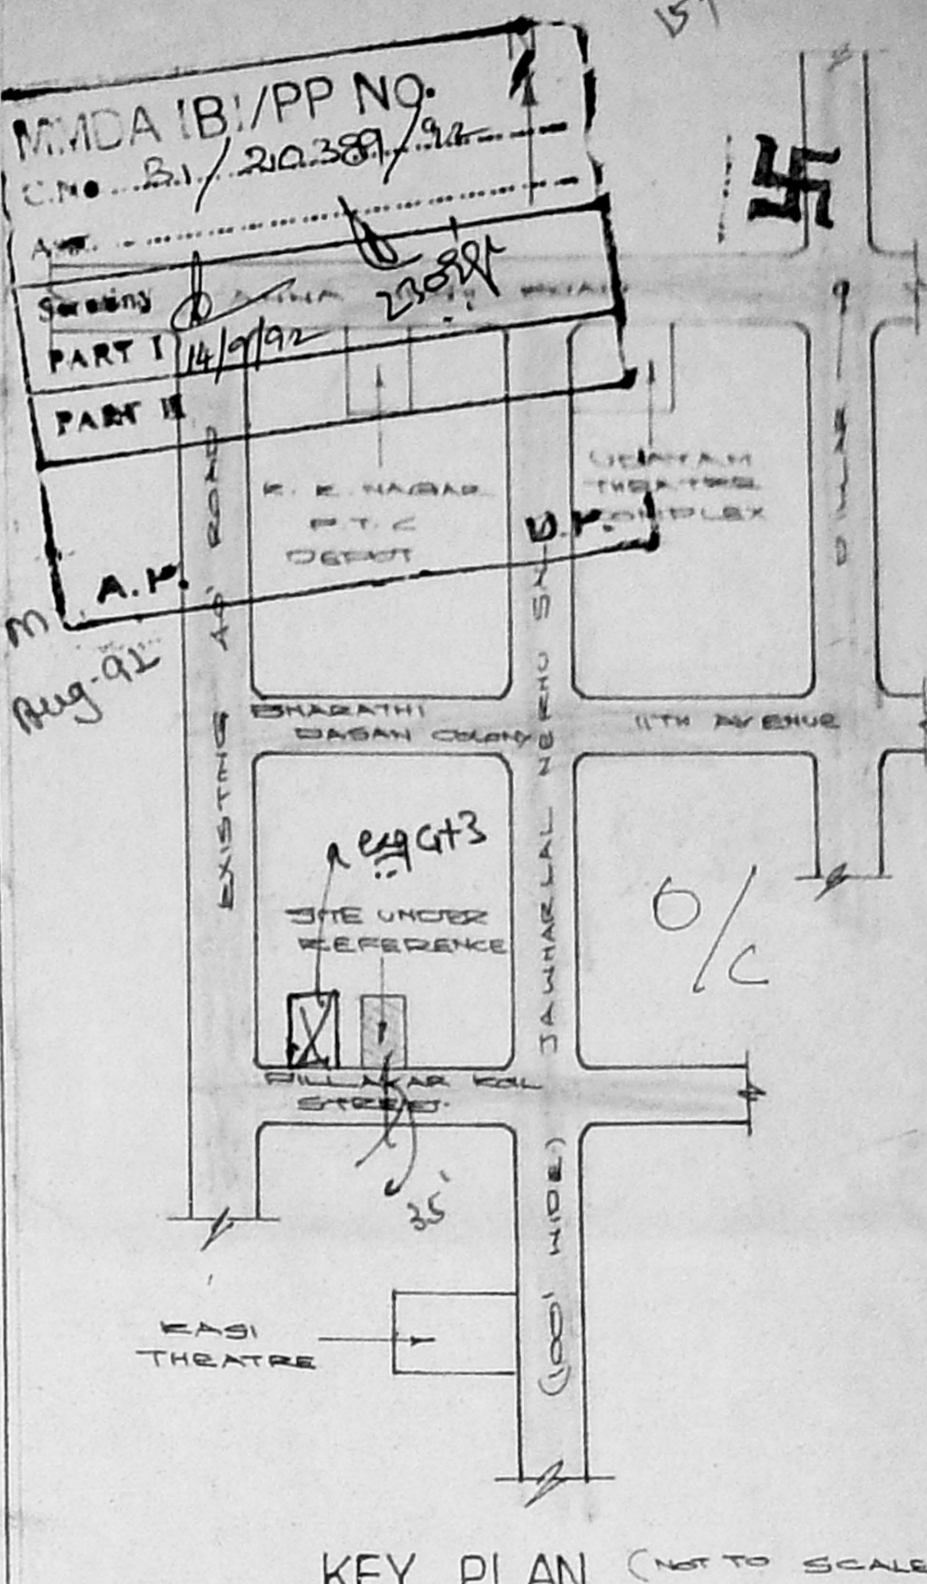 MMDA (B)/PP NO.
C.No. B1/20389/92
Scrutiny
PART I 14/9/92
PART II
A.P.
D.P.
Aug-92
N
K. K. NAGAR
P.T.C
DEPOT
UDAYAM
THEATRE
COMPLEX
EXISTING 40' ROAD
BHARATHI
DASAN COLONY
11TH AVENUE
JAWHARLAL NEHRU SALAI
(100' WIDE)
G+3
SITE UNDER
REFERENCE
O/C
PILLAIYAR KOIL
STREET.
35'
KASI
THEATRE
KEY PLAN (NOT TO SCALE